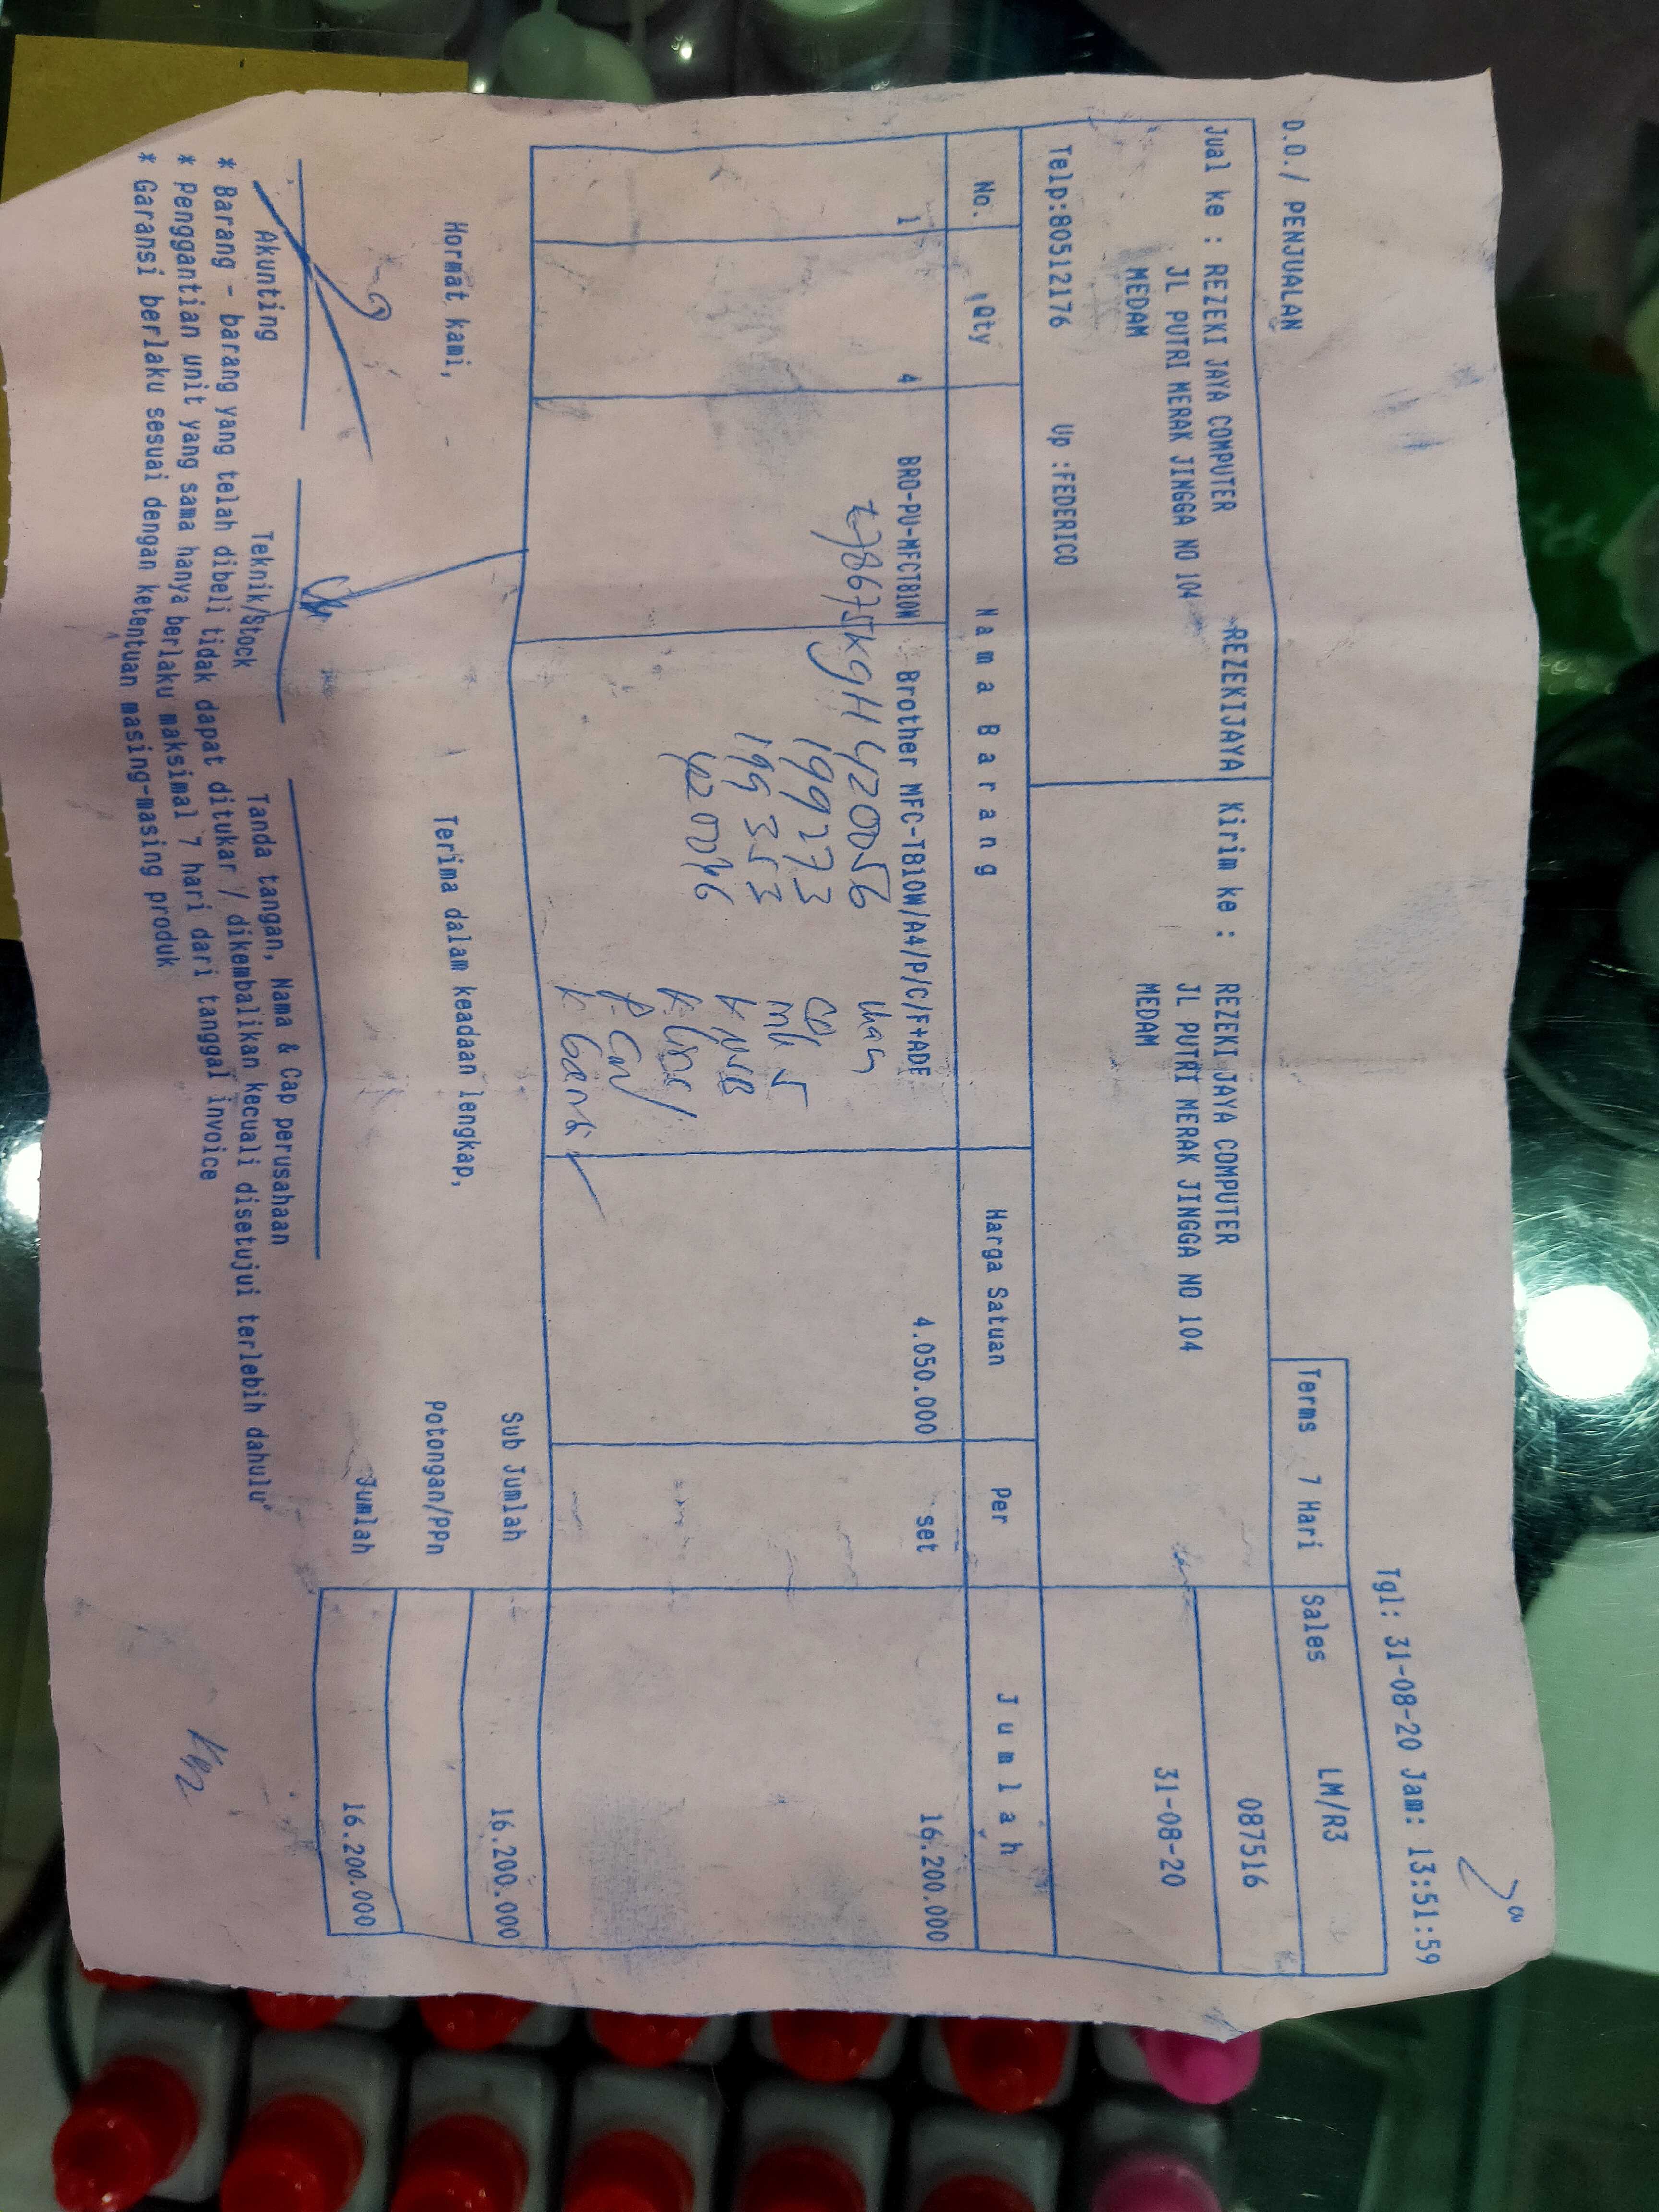 Tgl: 31-08-20 Jam: 13:51:59
D.O./ PENJUALAN
Terms 7 Hari Sales LM/R3
REZEKIJAYA
087516
Jual ke : REZEKI JAYA COMPUTER Kirim ke : REZEKI JAYA COMPUTER
JL PUTRI MERAK JINGGA NO 104 JL PUTRI MERAK JINGGA NO 104 31-08-20
MEDAM MEDAM
Telp:80512176 Up :FEDERICO
No. Qty Nama Barang Harga Satuan Per Jumlah
1 4 BRO-PU-MFCT810W Brother MFC-T810W/A4/P/C/F+ADF 4.050.000 set 16.200.000
E78675K9H420056
199273
199353
420046
k USB
k line
k Garansi
Sub Jumlah 16.200.000
Hormat kami, Terima dalam keadaan lengkap, Potongan/PPn
Jumlah 16.200.000
Akunting Teknik/Stock Tanda tangan, Nama & Cap perusahaan
* Barang - barang yang telah dibeli tidak dapat ditukar / dikembalikan kecuali disetujui terlebih dahulu
* Penggantian unit yang sama hanya berlaku maksimal 7 hari dari tanggal invoice
* Garansi berlaku sesuai dengan ketentuan masing-masing produk